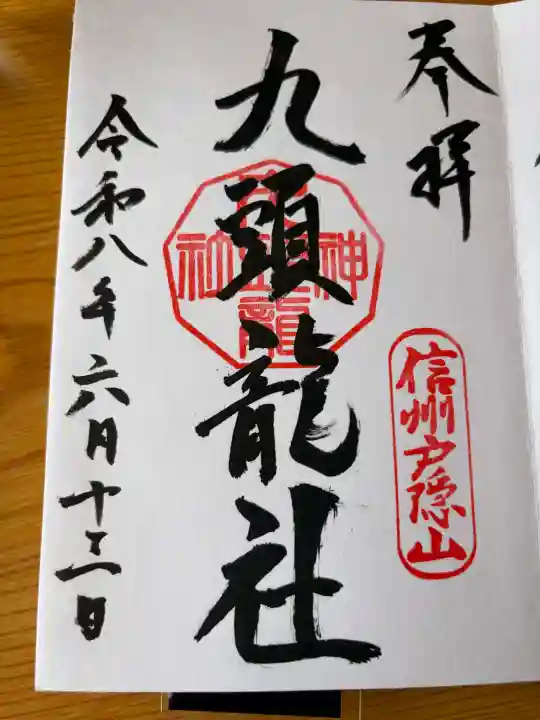 奉拝
信州戸隠山
九頭龍社
神
社
龍
令和八年六月十三日